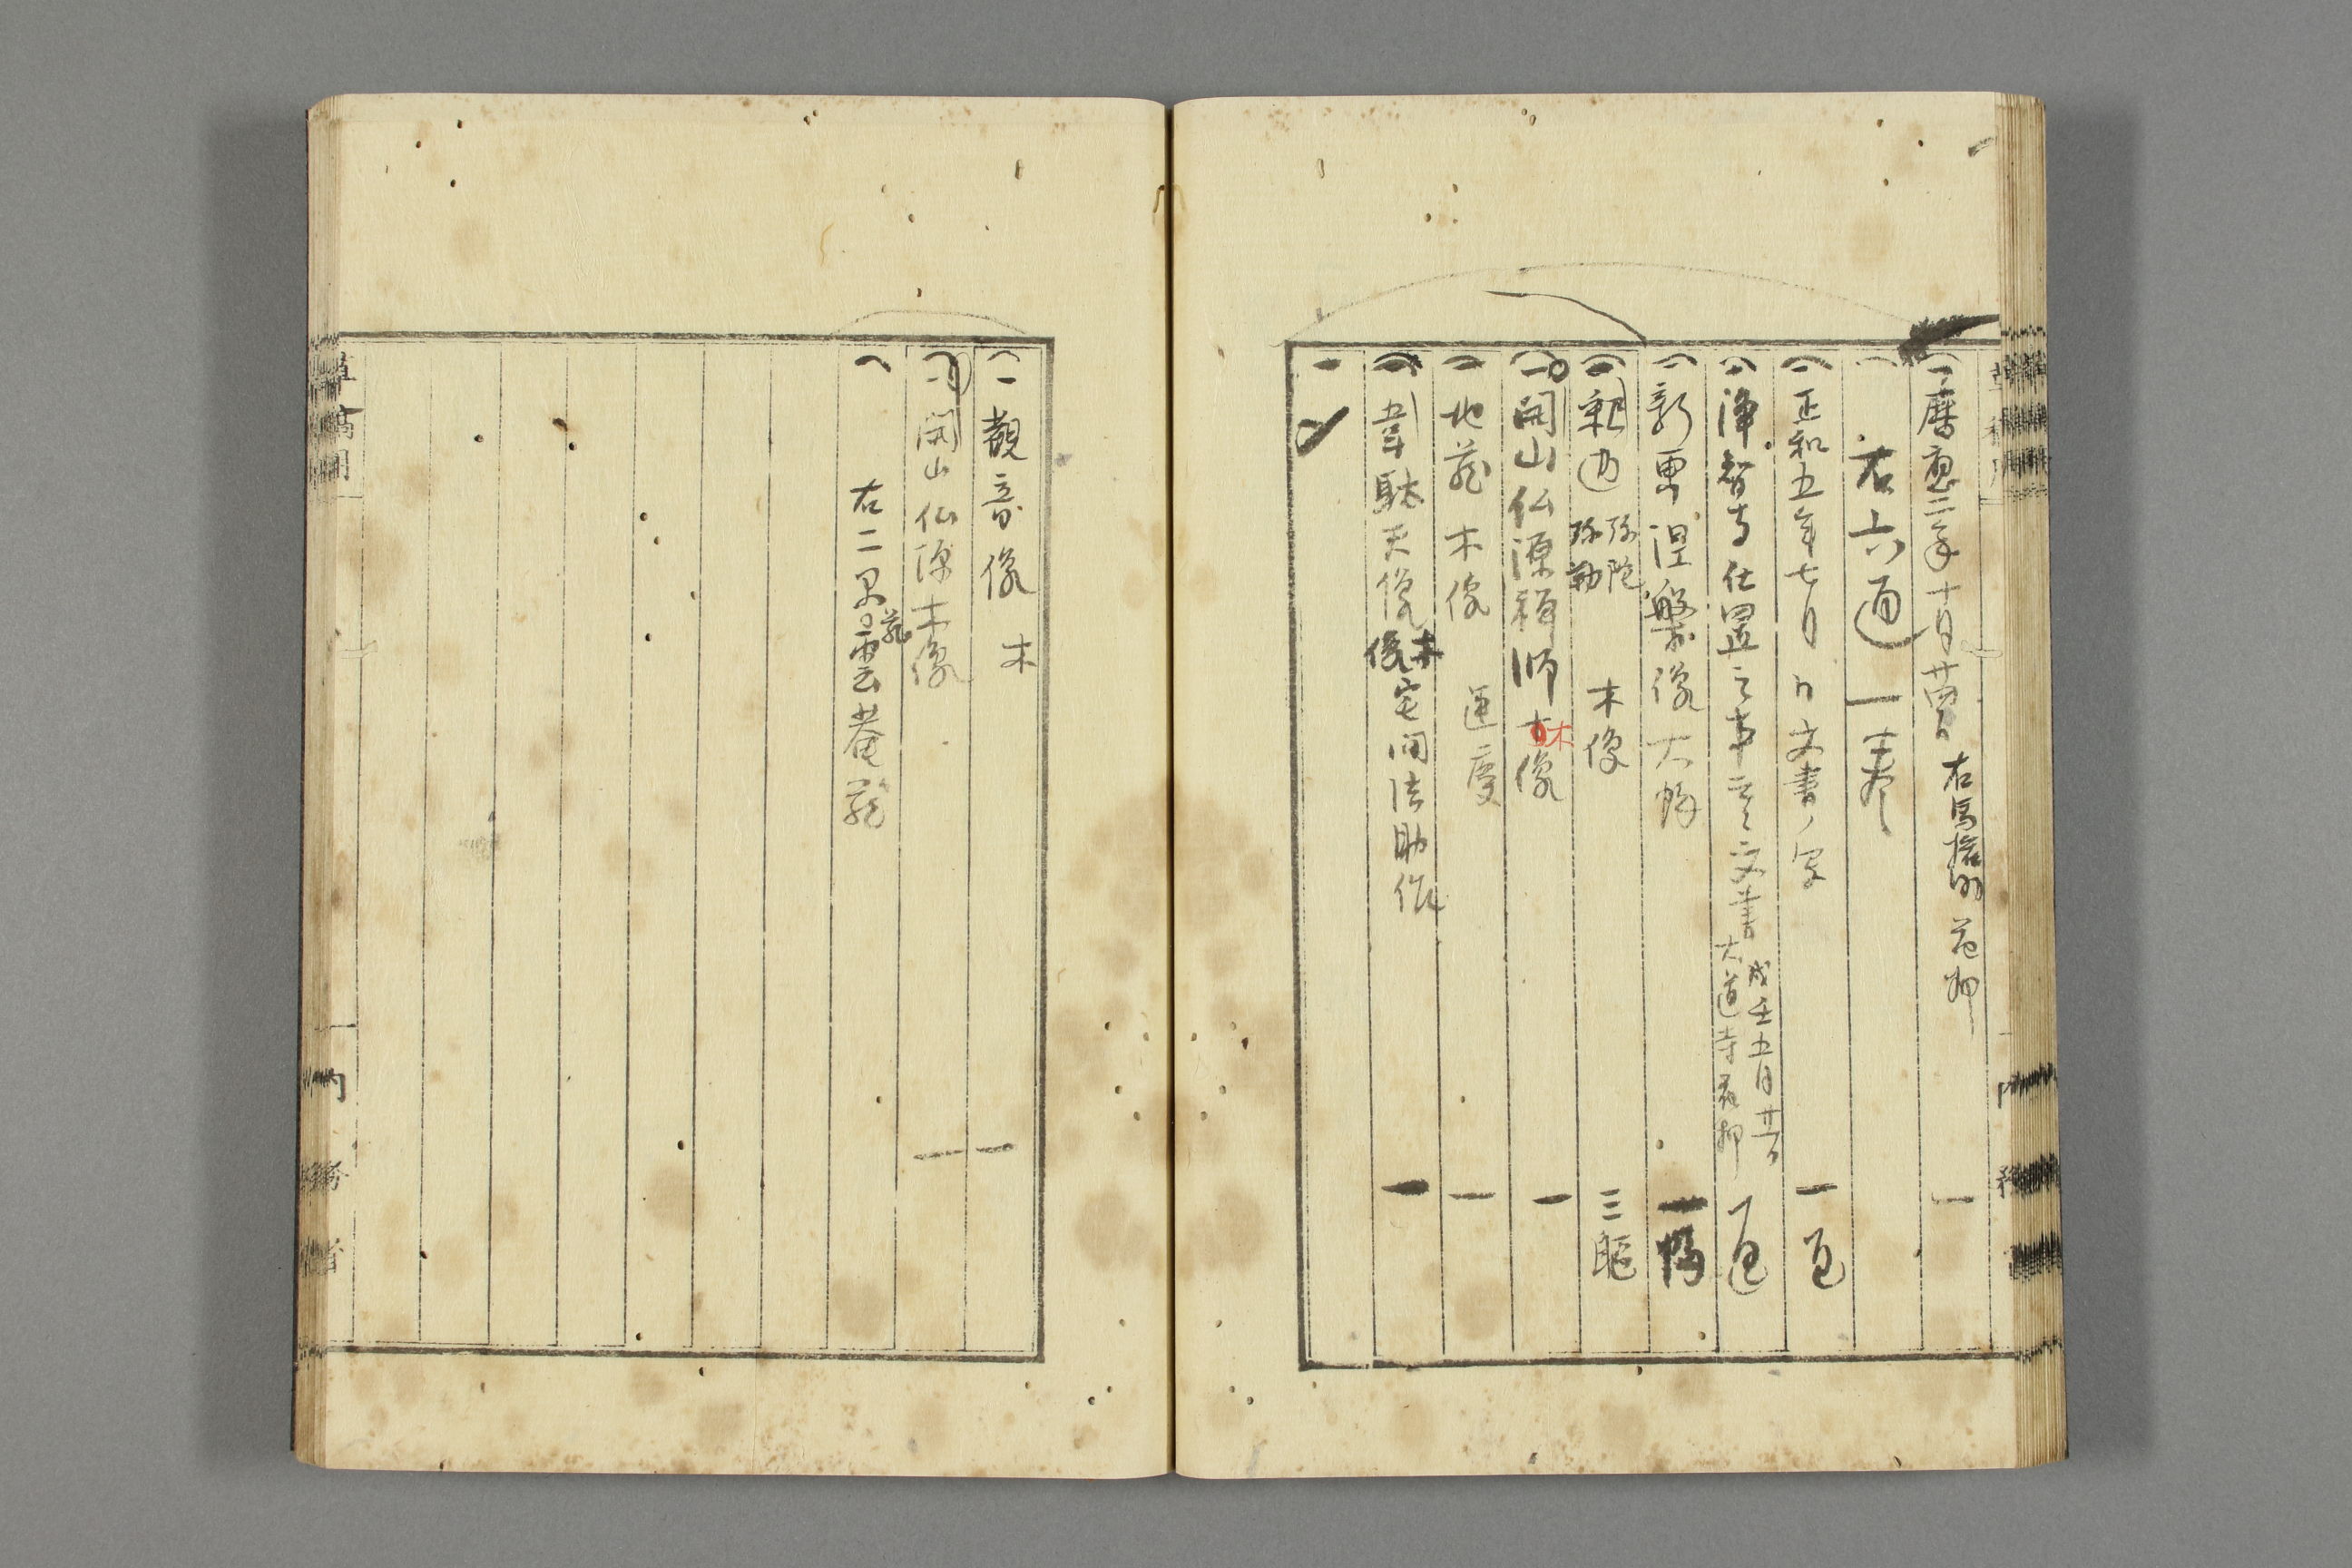 一暦應二年十月廿四日 右馬権助 花押 一
右六通一巻
一正和五年七月ノ文書ノ写 一通
一浄智寺仕置之事云々文書 戊壬五月廿日 大道寺花押 一通
一彩画涅槃像 大幅 一幅
一釈迦 弥陀 弥勒 木像 三躯
一開山仏源禅師木像 一
一地蔵木像 運慶 一
一韋駄天像 木像 宅间法助作 一
一
一觀音像 木 一
一開山仏源木像 一
右二 蔵雲菴蔵
草稿用
内務省